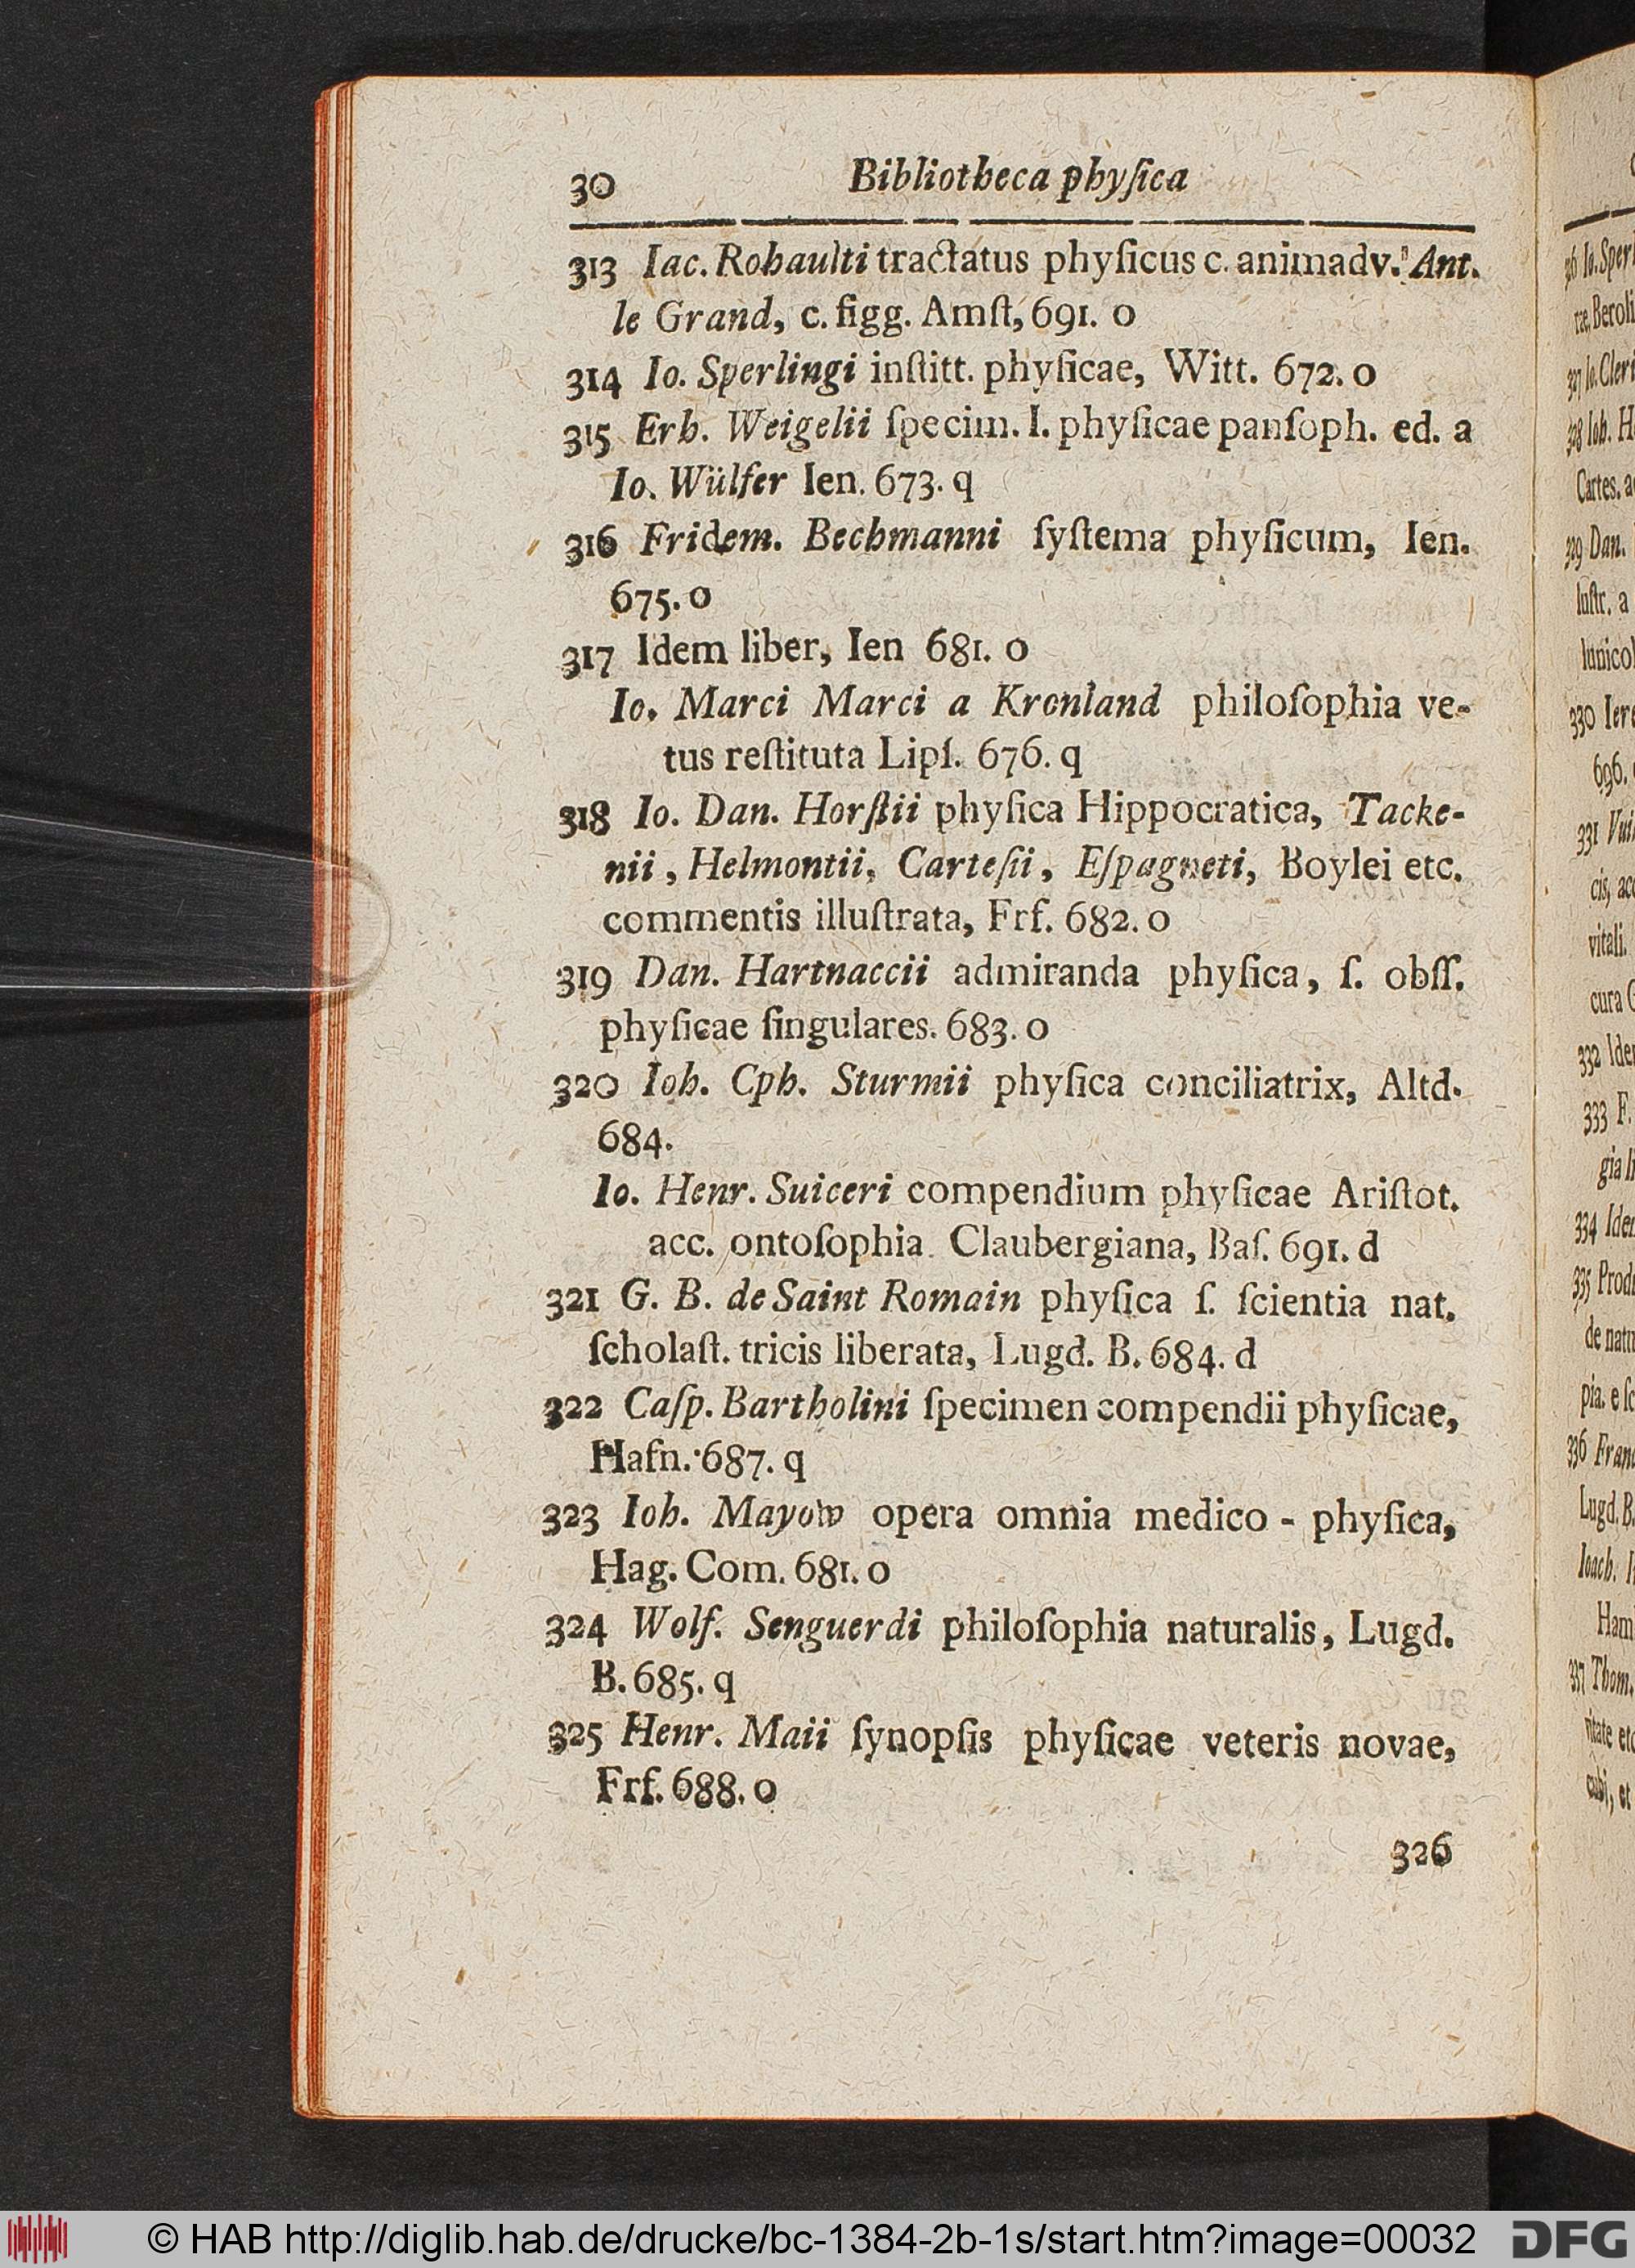 30 Bibliotheca phyſica
313 Iac. Rohaulti tractatus phyſicus c. animadv. Ant.
le Grand, c. figg. Amſt, 691. o
314 Io. Sperlingi inſtitt. phyſicae, Witt. 672. o
315 Erh. Weigelii ſpecim. I. phyſicae panſoph. ed. a
Io. Wülfer Ien. 673. q
316 Fridem. Bechmanni ſyſtema phyſicum, Ien.
675. o
317 Idem liber, Ien 681. o
Io. Marci Marci a Kronland philoſophia ve-
tus reſtituta Lipſ. 676. q
318 Io. Dan. Horſtii phyſica Hippocratica, Tacke-
nii, Helmontii, Carteſii, Eſpagneti, Boylei etc.
commentis illuſtrata, Frf. 682. o
319 Dan. Hartnaccii admiranda phyſica, ſ. obſſ.
phyſicae ſingulares. 683. o
320 Ioh. Cph. Sturmii phyſica conciliatrix, Altd.
684.
Io. Henr. Suiceri compendium phyſicae Ariſtot.
acc. ontoſophia Claubergiana, Baſ. 691. d
321 G. B. de Saint Romain phyſica ſ. ſcientia nat.
ſcholaſt. tricis liberata, Lugd. B. 684. d
322 Caſp. Bartholini ſpecimen compendii phyſicae,
Hafn. 687. q
323 Ioh. Mayow opera omnia medico - phyſica,
Hag. Com. 681. o
324 Wolf. Senguerdi philoſophia naturalis, Lugd.
B. 685. q
325 Henr. Maii ſynopſis phyſicae veteris novae,
Frf. 688. o
326
Io. Sperl
rae, Beroli
327 Io. Cleri
328 Ioh. H
Cartes. a
329 Dan.
luſtr. a
lunicol
330 Iere
696.
331 Vui
cis, acc
vitali.
cura G
332 Ide
333 F.
gia li
334 Ide
335 Prod
de natu
pia. e ſc
336 Fran
Lugd. B.
Ioach. I
Ham
337 Thom.
ritate etc
cubi, et
© HAB http://diglib.hab.de/drucke/bc-1384-2b-1s/start.htm?image=00032
DFG